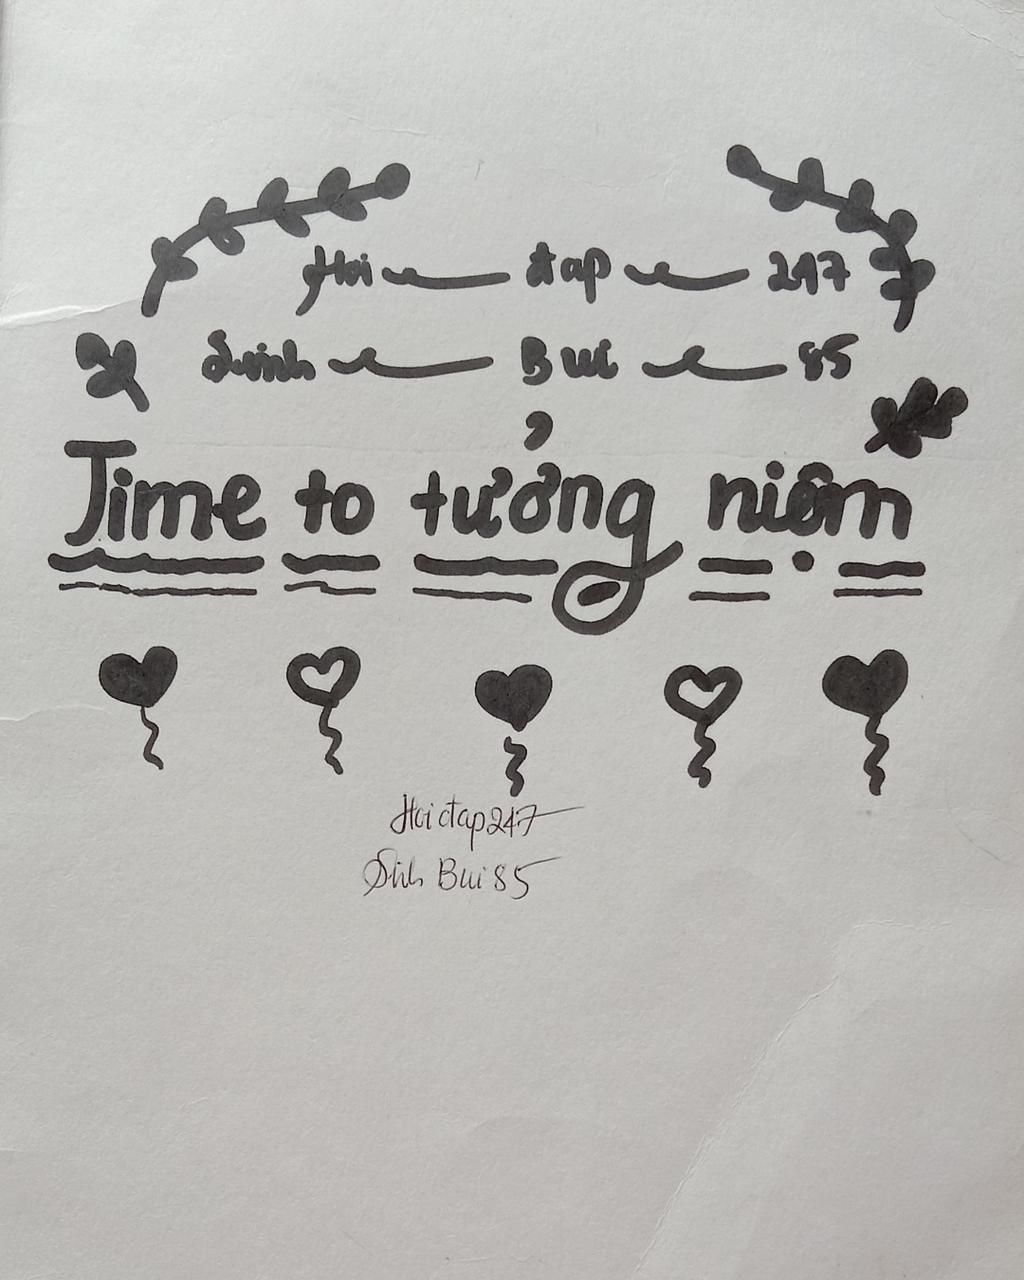 Hoi đap 247
Sinh Bui 85
Time to tưởng niệm
Hoi đap 247
Sinh Bui 85